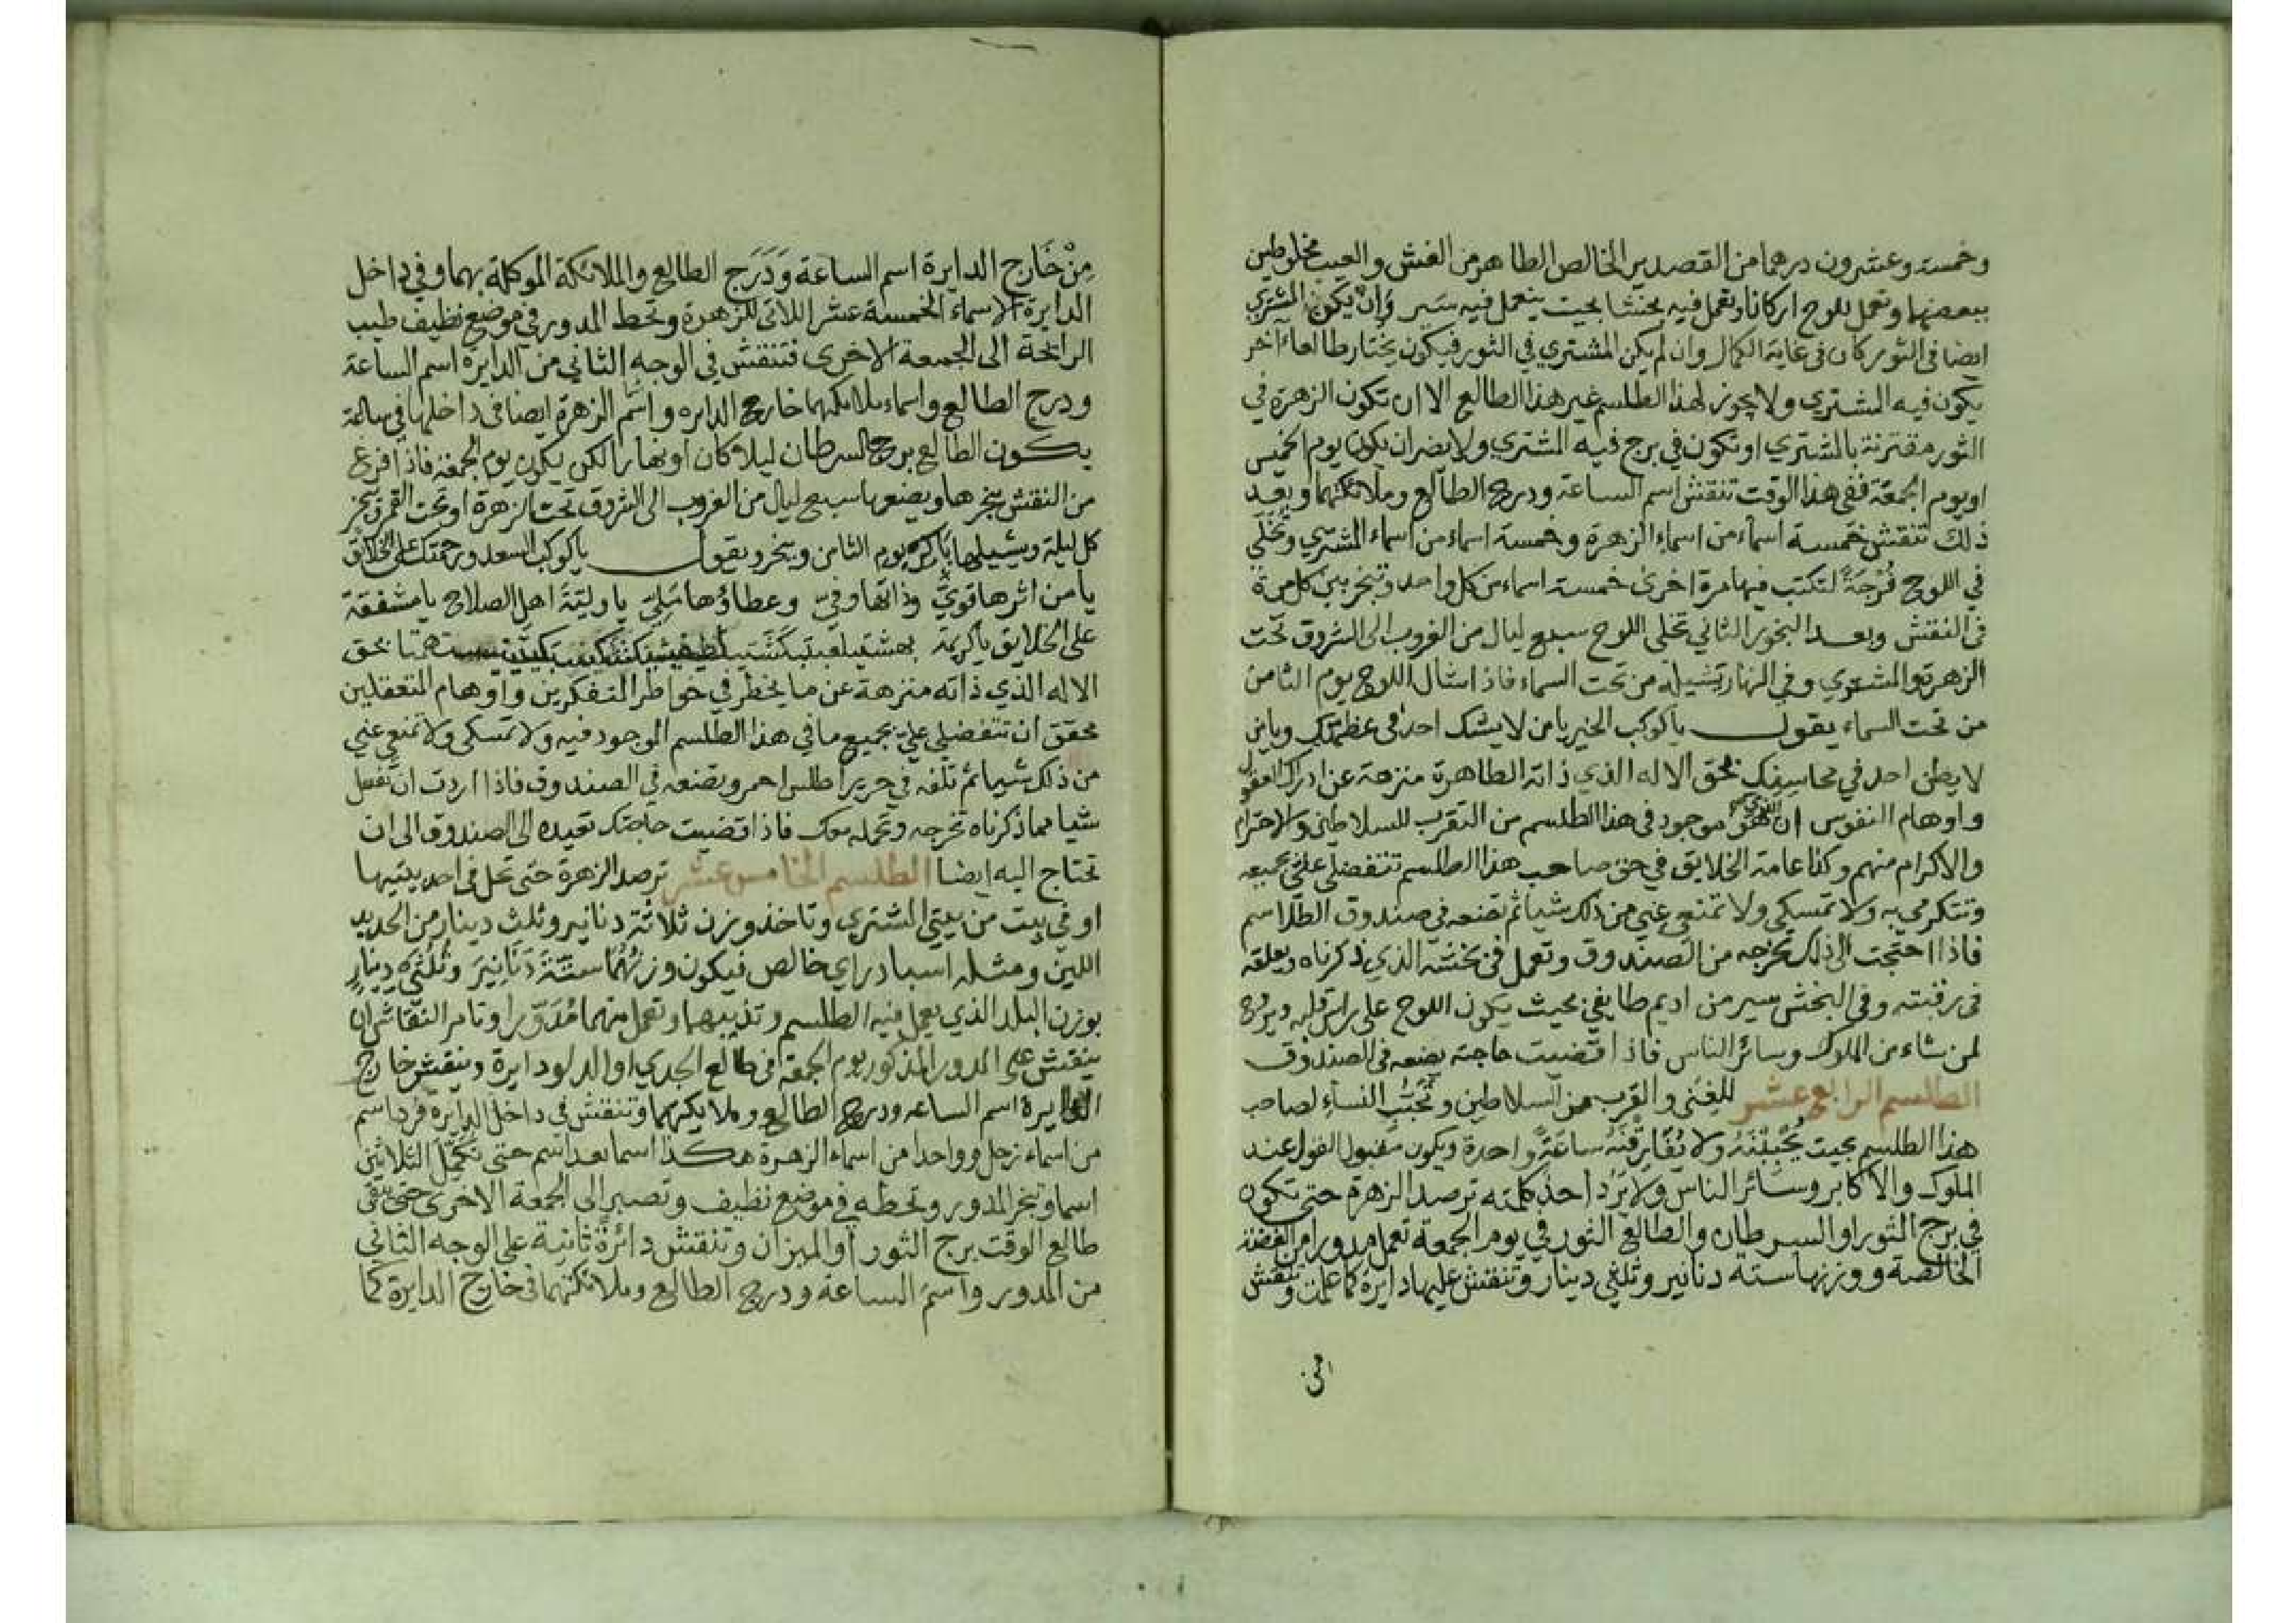 وخمسة وعشرون درهما من القصدير الخالص الطاهر من الغش والعيب مخلوطين
ببعضها وتعمل للوح اركانا وتعمل فيه بخشا بحيث ينعمل فيه سير وان يكون المشتري
ايضا في الثور كان في غاية الكمال وان لم يكن المشتري في الثور فيكون يختار طالعا اخر
يكون فيه المشتري ولا يجوز لهذا الطلسم غير هذا الطالع الا ان تكون الزهرة في
الثور مقترنة بالمشتري او تكون في برج فيه المشتري ولا يضر ان يكون يوم الخميس
او يوم الجمعة ففي هذا الوقت تنقش اسم الساعة ودرج الطالع وملائكتهما وبعد
ذلك تنقش خمسة اسماء من اسماء الزهرة وخمسة اسماء من اسماء المشتري وتخلي
في اللوح فرجة لتكتب فيها مرة اخرى خمسة اسماء من كل واحد وتبخر بين كل مرة
في النقش وبعد البخور الثاني تخلى اللوح سبع ليال من الغروب الى الشروق تحت
الزهرة والمشتري وفي النهار تشيله من تحت السماء فاذا شال اللوح يوم الثامن
من تحت السماء يقول يا كوكب الخير يا من لا يشك احد في عظمتك ويا من
لا يطن احد في محاسنك بحق الاله الذي ذاته الطاهرة منزهة عن ادراك العقول
واوهام النفوس ان الذي هو موجود في هذا الطلسم من التقرب للسلاطين والاحترام
والاكرام منهم وكذا عامة الخلايق في حق صاحب هذا الطلسم تتفضلي علي بجميعه
وتتكرمي به ولا تمسكي ولا تمنعي عني من ذلك شيا ثم تضعه في صندوق الطلاسم
فاذا احتجت الى ذلك تخرجه من الصندوق وتعمل في بخشه الذي ذكرناه ويعلقه
في رقبته وفي البخش سير من اديم طايفي بحيث يكون اللوح على راس قلبه ويروح
لمن شاء من الملوك وسائر الناس فاذا اقضيت حاجته يضعه في الصندوق
الطلسم الرابع عشر للغنى والقرب من السلاطين وتحبب النساء لصاحب
هذا الطلسم بحيث يحببنه ولا يفارقنه ساعة واحدة ويكون مقبول القول عند
الملوك والاكابر وسائر الناس ولا يرد احد كلمته ترصد الزهرة حتى تكون
في برج الثور او السرطان والطالع الثور في يوم الجمعة تعمل مدورا من الفضة
الخالصة ووزنها ستة دنانير وثلثي دينار وتنقش عليها دايرة كما علمت وتنقش
من خارج الدايرة اسم الساعة ودرج الطالع والملائكة الموكلة بهما وفي داخل
الدايرة الاسماء الخمسة عشر اللاتي للزهرة وتحط المدور في موضع نظيف طيب
الرائحة الى الجمعة الاخرى فتنقش في الوجه الثاني من الدايرة اسم الساعة
ودرج الطالع واسماء ملايكتهما خارج الدايره واسم الزهرة ايضا في داخلها في ساعة
يكون الطالع برج السرطان ليلا كان او نهارا لكن يكون يوم الجمعة فاذا افرغ
من النقش يبخرها ويضعها سبع ليال من الغروب الى الشروق تحت الزهرة او تحت القمر يبخر
كل ليلة ويشيلها باكر يوم الثامن ويبخر ويقول يا كوكب السعد ورحمتك على الخلايق
يا من اثرها قوي وذاتها وفي وعطاؤها ملي يا ولية اهل الصلاح يا مشفقة
على الخلايق يا كريمة بحق
الاله الذي ذاته منزهة عن ما يخطر في خواطر المتفكرين واوهام المتعقلين
محقق ان تتفضلي علي بجميع ما في هذا الطلسم الموجود فيه ولا تمسكي ولا تمنعي عني
من ذلك شيا ثم تلفه في حرير اطلس احمر وتضعه في الصندوق فاذا اردت ان تفعل
شيا مما ذكرناه تخرجه وتحمله معك فاذا قضيت حاجتك تعيده الى الصندوق الى ان
تحتاج اليه ايضا الطلسم الخامس عشر ترصد الزهرة حتى تحل في احد بيتيها
او في بيت من بيتي المشتري وتاخذ وزن ثلاثة دنانير وثلث دينار من الحديد
اللين ومثله اسبادراي خالص فيكون وزنهما ستة دنانير وثلثي دينار
بوزن البلد الذي يعمل فيه الطلسم وتذيبهما وتعمل منهما مدورا وتامر النقاش ان
ينقش على المدور المذكور يوم الجمعة في طالع الجدي او الدلو دايرة وينقش خارج
الدايرة اسم الساعه ودرج الطالع وملايكتهما وتنقش في داخل الدايره فرد اسم
من اسماء زحل وواحدا من اسماء الزهرة هكذا اسما بعد اسم حتى تكمل الثلاثين
اسما وتبخر المدور وتحطه في موضع نظيف وتصبر الى الجمعة الاخرى حتى يبقى
طالع الوقت برج الثور او الميزان وتنقش دائرة ثانية على الوجه الثاني
من المدور واسم الساعة ودرج الطالع وملائكتهما في خارج الدايرة كما